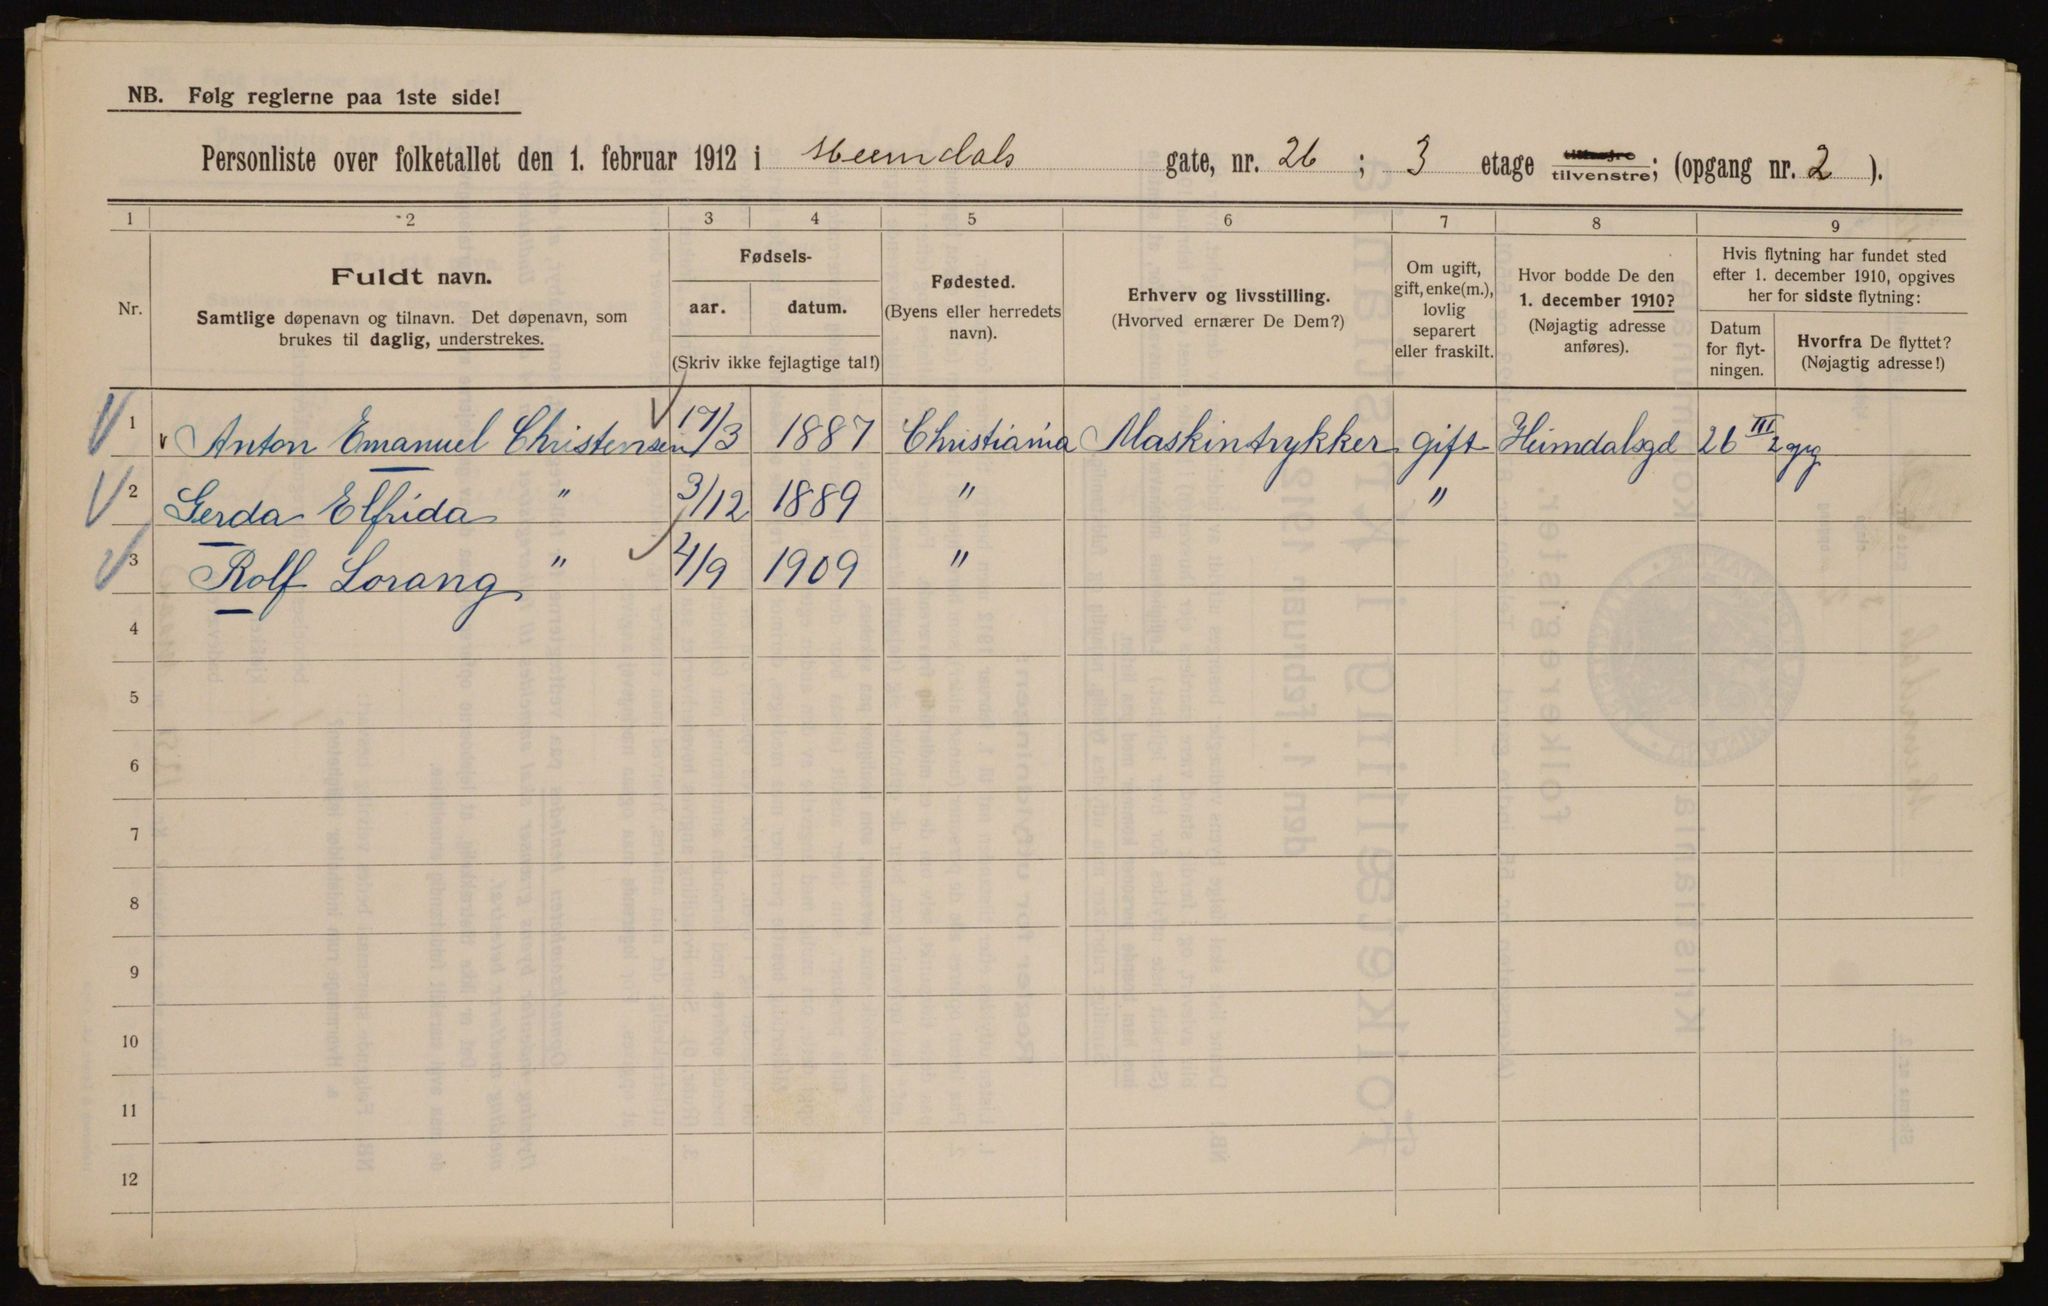 NB. Følg reglerne paa 1ste side!
Personliste over folketallet den 1. februar 1912 i Heimdals gate, nr. 26 ; 3 etage tilhøjre tilvenstre; (opgang nr. 2 ).
1 2 3 4 5 6 7 8 9
Nr.
Fuldt navn.
Samtlige døpenavn og tilnavn. Det døpenavn, som
brukes til daglig, understrekes.
Fødsels-
aar. datum.
(Skriv ikke fejlagtige tal!)
Fødested.
(Byens eller herredets
navn).
Erhverv og livsstilling.
(Hvorved ernærer De Dem?)
Om ugift,
gift, enke(m.),
lovlig
separert
eller fraskilt.
Hvor bodde De den
1. december 1910?
(Nøjagtig adresse
anføres).
Hvis flytning har fundet sted
efter 1. december 1910, opgives
her for sidste flytning:
Datum
for flyt-
ningen.
Hvorfra De flyttet?
(Nøjagtig adresse!)
1 Anton Emanuel Christensen 17/3 1887 Christiania Maskintrykker gift Heimdalsgd 26 III 2 opg
2 Gerda Elfrida " 3/12 1889 " "
3 Rolf Lorang " 4/9 1909 "
4
5
6
7
8
9
10
11
12